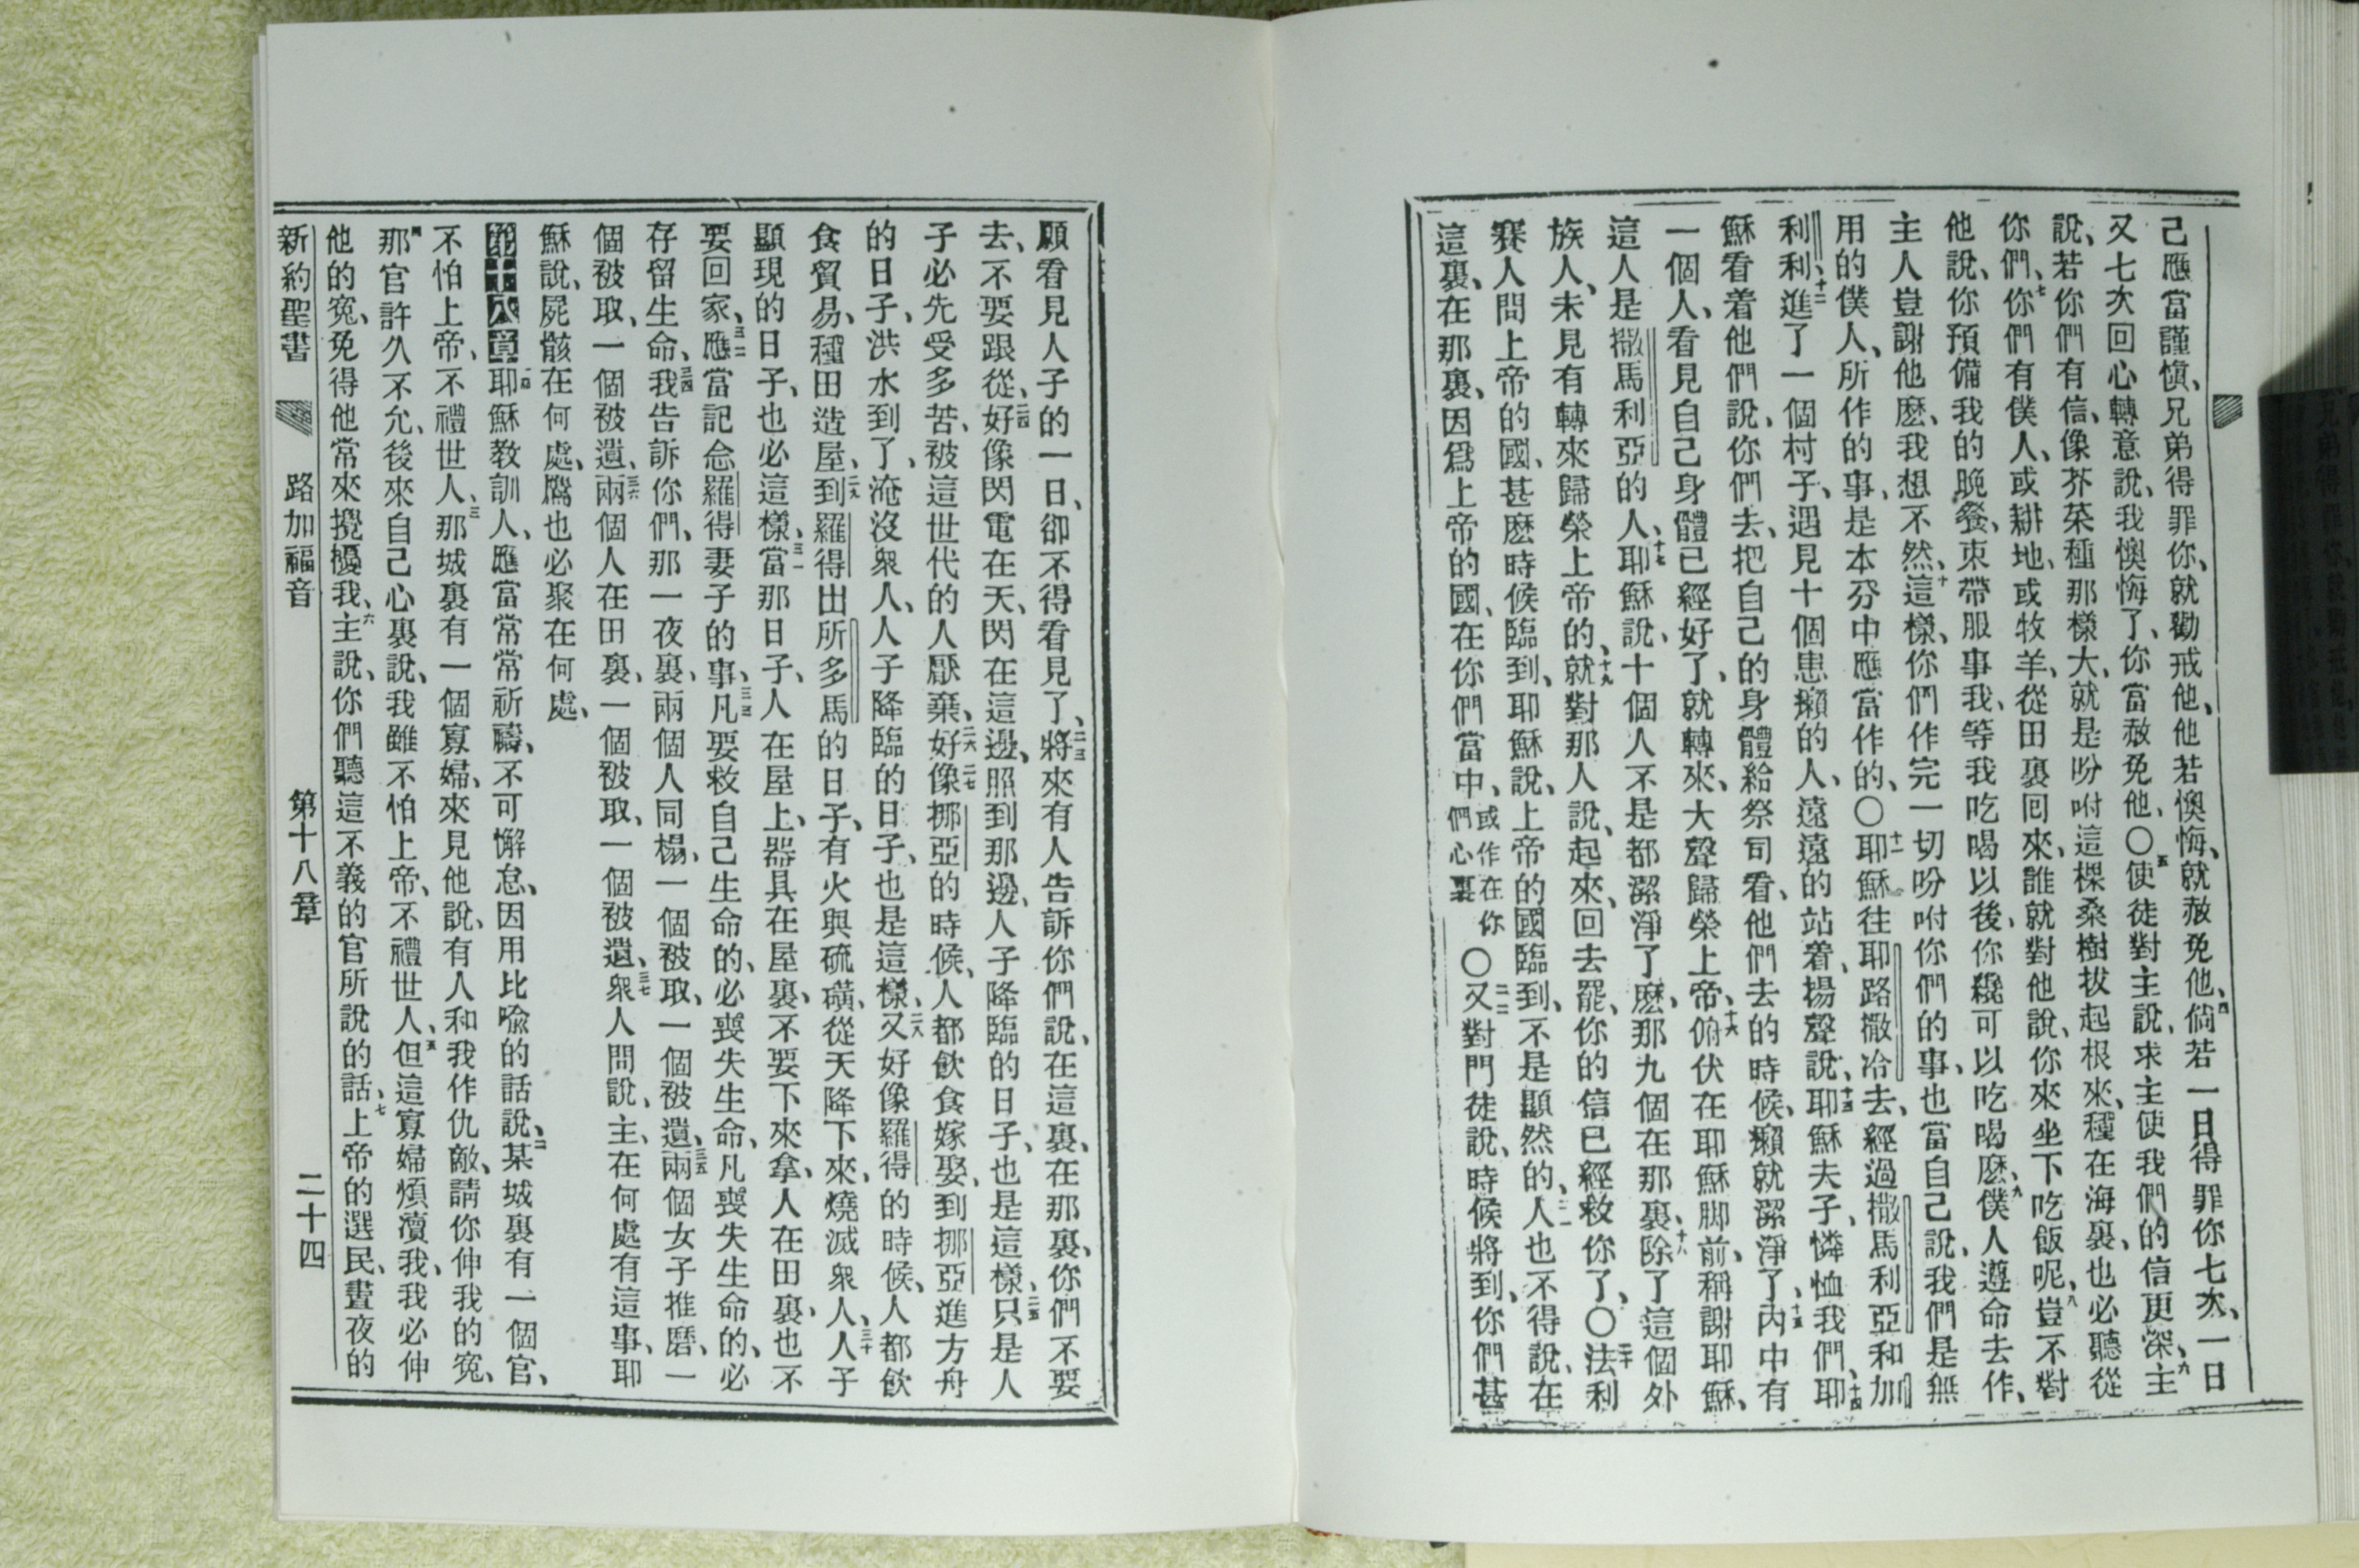 己應當謹愼、兄弟得罪你、就勸戒他、他若懊悔、就赦免他、四倘若一日得罪你七次、一日
又七次回心轉意說、我懊悔了、你當赦免他、〇五使徒對主說、求主使我們的信更深、六主
說、若你們有信、像芥菜種那樣大、就是吩咐這棵桑樹拔起根來、種在海裏、也必聽從
你們、七你們有僕人、或耕地、或牧羊、從田裏回來、誰就對他說、你來坐下吃飯呢、八豈不對
他說、你預備我的晚餐、束帶服事我、等我吃喝以後、你纔可以吃喝麽、九僕人遵命去作、
主人豈謝他麽、我想不然、十這樣、你們作完一切吩咐你們的事、也當自己說、我們是無
用的僕人、所作的事、是本分中應當作的、〇十一耶穌往耶路撒冷去、經過撒馬利亞和加
利利、十二進了一個村子、遇見十個患癩的人、遠遠的站着、揚聲說、十三耶穌夫子、憐恤我們、十四耶
穌看着他們說、你們去、把自己的身體給祭司看、他們去的時候、癩就潔淨了、十五內中有
一個人、看見自己身體已經好了、就轉來、大聲歸榮上帝、十六俯伏在耶穌脚前、稱謝耶穌、
這人是撒馬利亞的人、十七耶穌說、十個人不是都潔淨了麽、那九個在那裏、十八除了這個外
族人、未見有轉來歸榮上帝的、十九就對那人說、起來、回去罷、你的信已經救你了、〇二十法利
賽人問上帝的國、甚麽時候臨到、耶穌說、上帝的國臨到、不是顯然的、二一人也不得說、在
這裏、在那裏、因爲上帝的國、在你們當中、或作在你們心裏〇二二又對門徒說、時候將到、你們甚
願看見人子的一日、卻不得看見了、二三將來有人告訴你們說、在這裏、在那裏、你們不要
去、不要跟從、二四好像閃電在天、閃在這邊、照到那邊、人子降臨的日子、也是這樣、二五只是人
子必先受多苦、被這世代的人厭棄、二六好像二七挪亞的時候、人都飮食嫁娶、到挪亞進方舟
的日子、洪水到了、淹沒衆人、人子降臨的日子、也是這樣、二八又好像羅得的時候、人都飮
食貿易、種田造屋、二九到羅得出所多馬的日子、有火與硫磺、從天降下來、燒滅衆人、三十人子
顯現的日子、也必這樣、三一當那日子、人在屋上、器具在屋裏、不要下來拿、人在田裏、也不
要回家、三二應當記念羅得妻子的事、三三凡要救自己生命的、必喪失生命、凡喪失生命的、必
存留生命、三四我告訴你們、那一夜裏、兩個人同榻、一個被取、一個被遺、三五兩個女子推磨、一
個被取、一個被遺、三六兩個人在田裏、一個被取、一個被遺、三七衆人問說、主、在何處有這事、耶
穌說、屍骸在何處、鷹也必聚在何處、
第十八章 一耶穌教訓人、應當常常祈禱、不可懈怠、因用比喩的話說、二某城裏有一個官、
不怕上帝、不禮世人、三那城裏有一個寡婦、來見他說、有人和我作仇敵、請你伸我的寃、
四那官許久不允、後來自己心裏說、我雖不怕上帝、不禮世人、五但這寡婦煩瀆我、我必伸
他的寃、免得他常來攪擾我、六主說、你們聽這不義的官所說的話、七上帝的選民、晝夜的
新約聖書 路加福音 第十八章 二十四